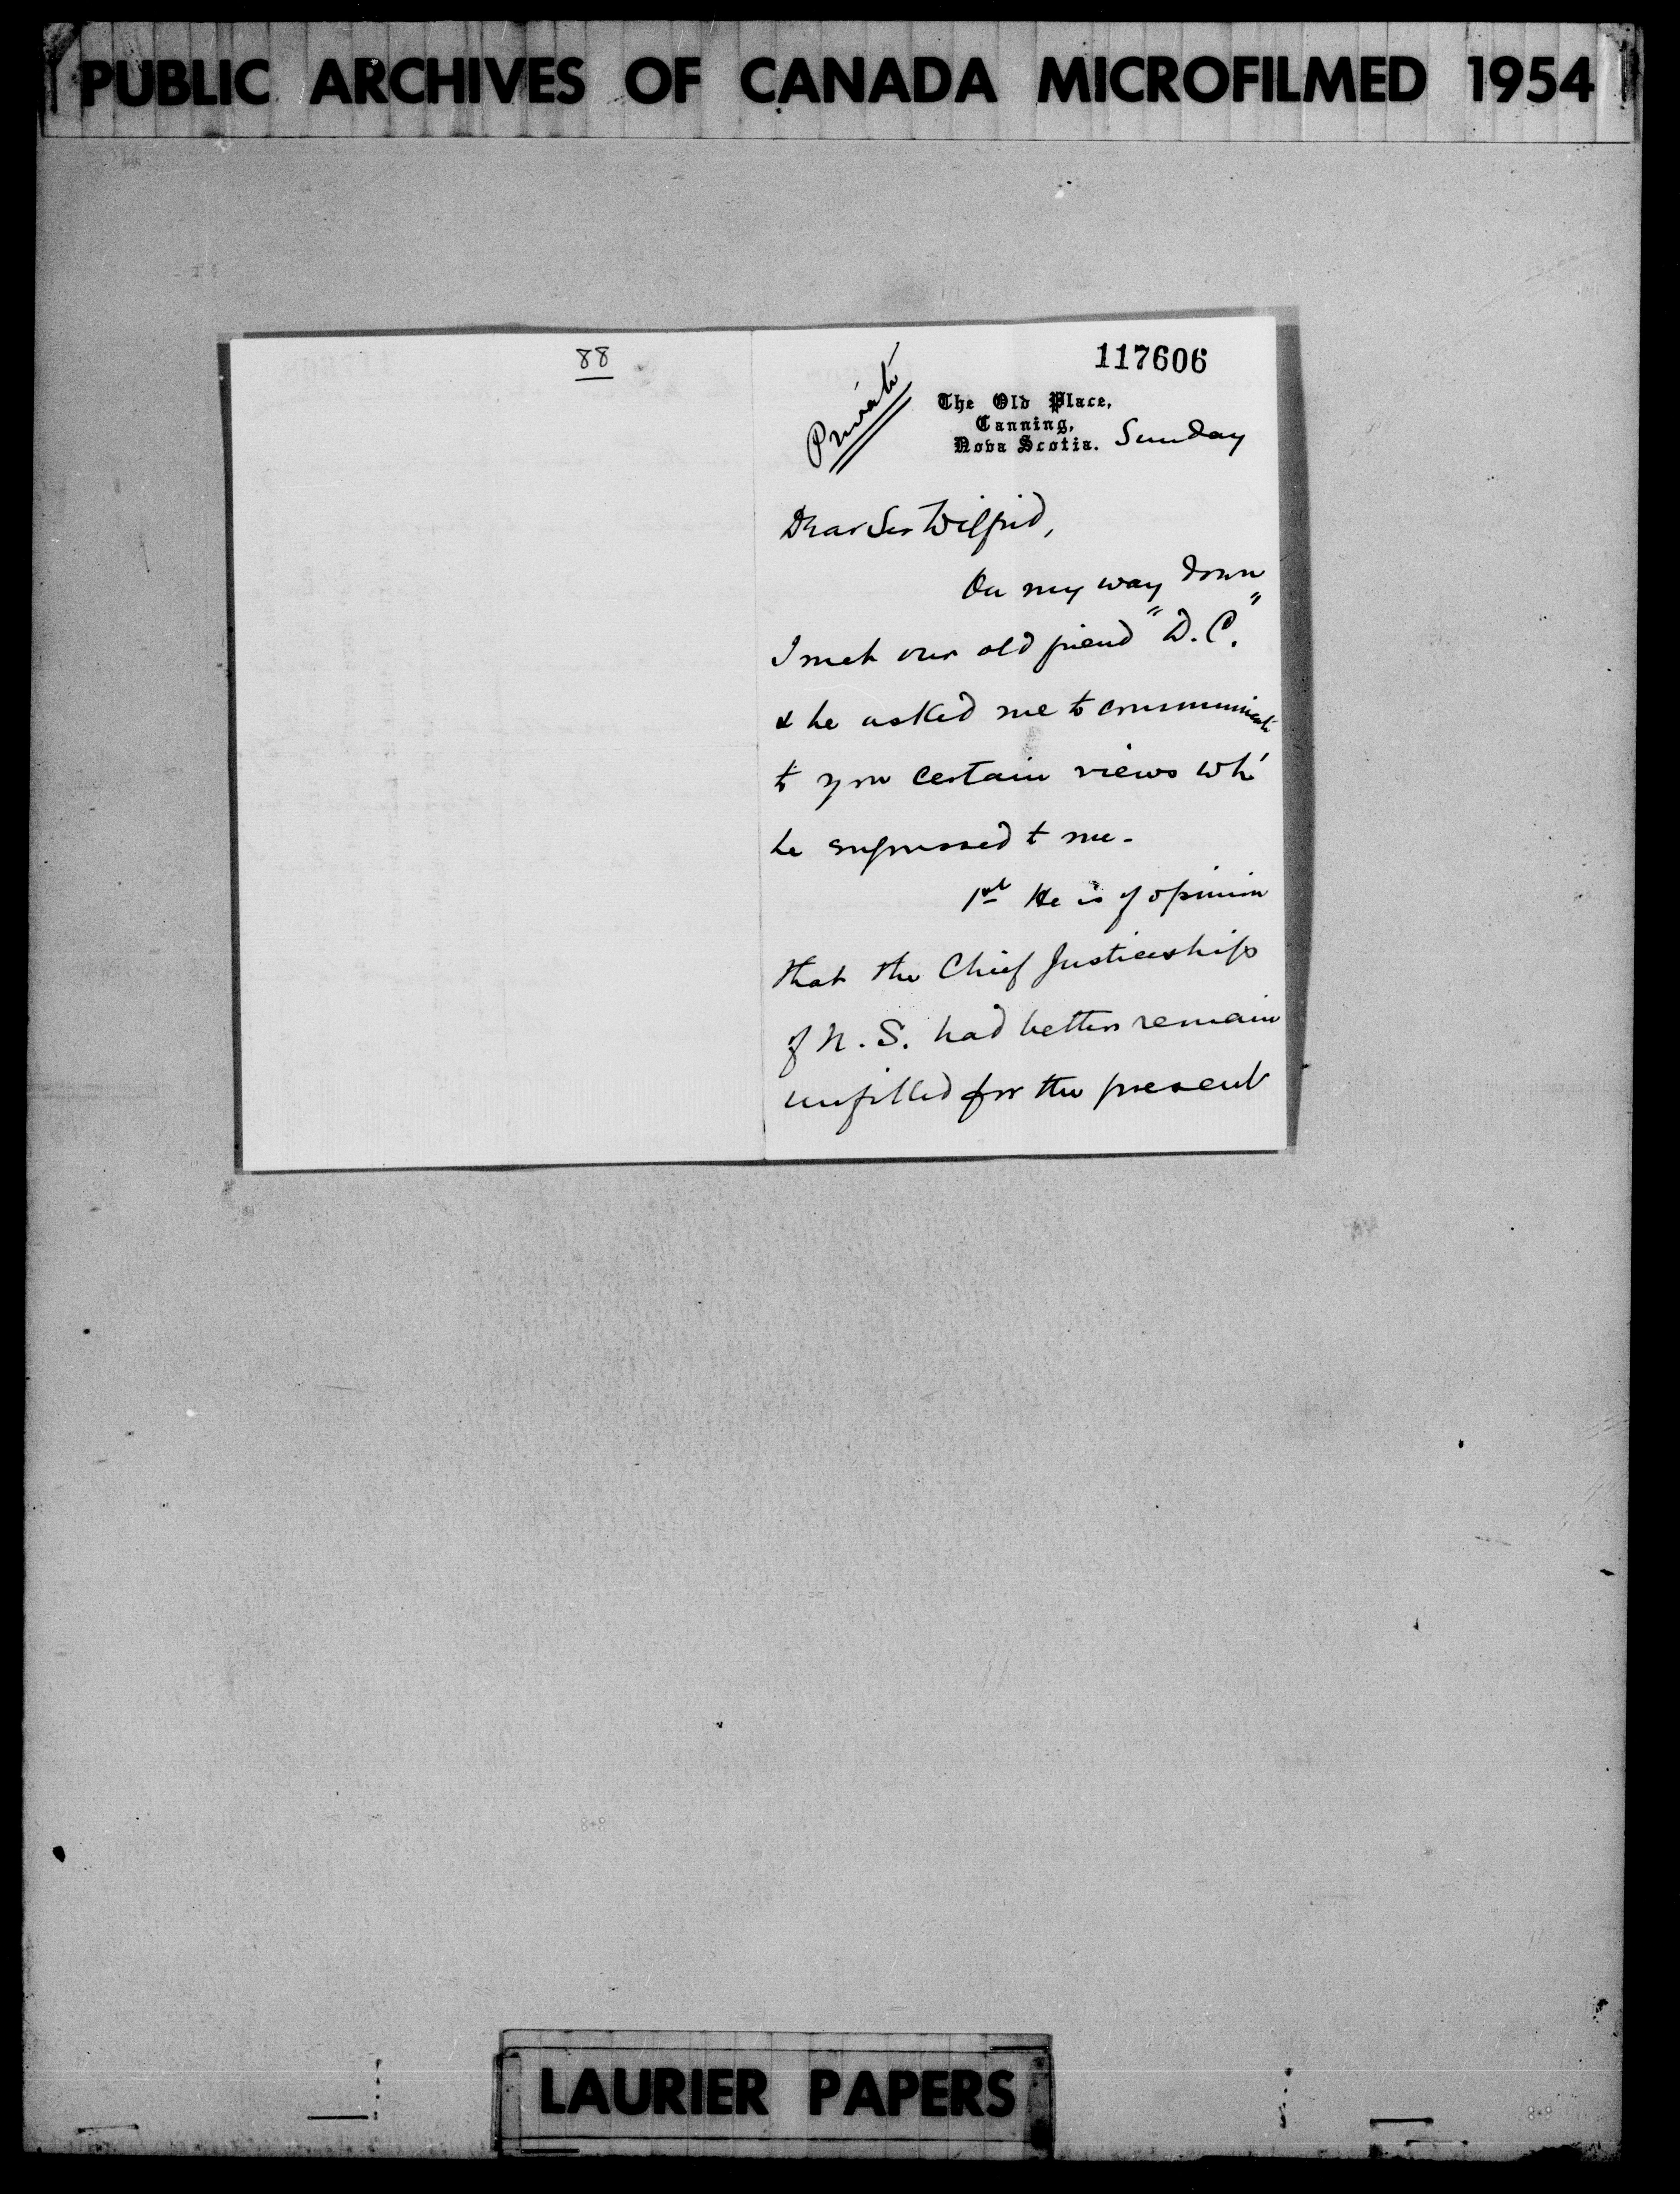 PUBLIC ARCHIVES OF CANADA MICROFILMED 1954
88
117606
Private
The Old Place,
Canning,
Nova Scotia. Sunday
Dear Sir Wilfrid,
On my way down
I met our old friend "D.C."
& he asked me to communicate
to you certain views wh
he expressed to me.
1st He is of opinion
that the Chief Justiceship
of N.S. had better remain
unfilled for the present
LAURIER PAPERS